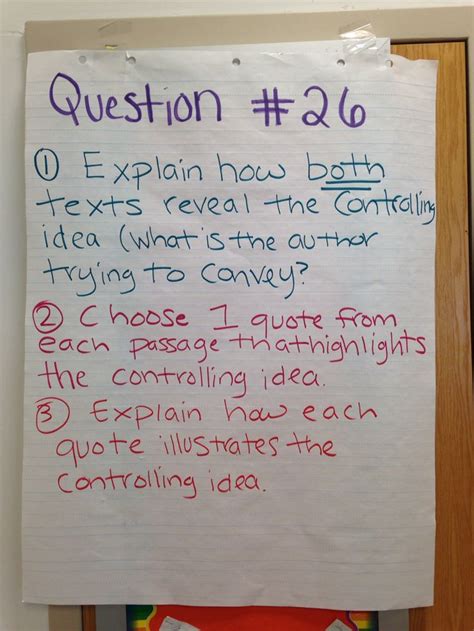 Question #26
① Explain how both
texts reveal the Controlling
idea (What is the author
trying to convey?
② Choose 1 quote from
each passage that highlights
the controlling idea.
③ Explain how each
quote illustrates the
controlling idea.